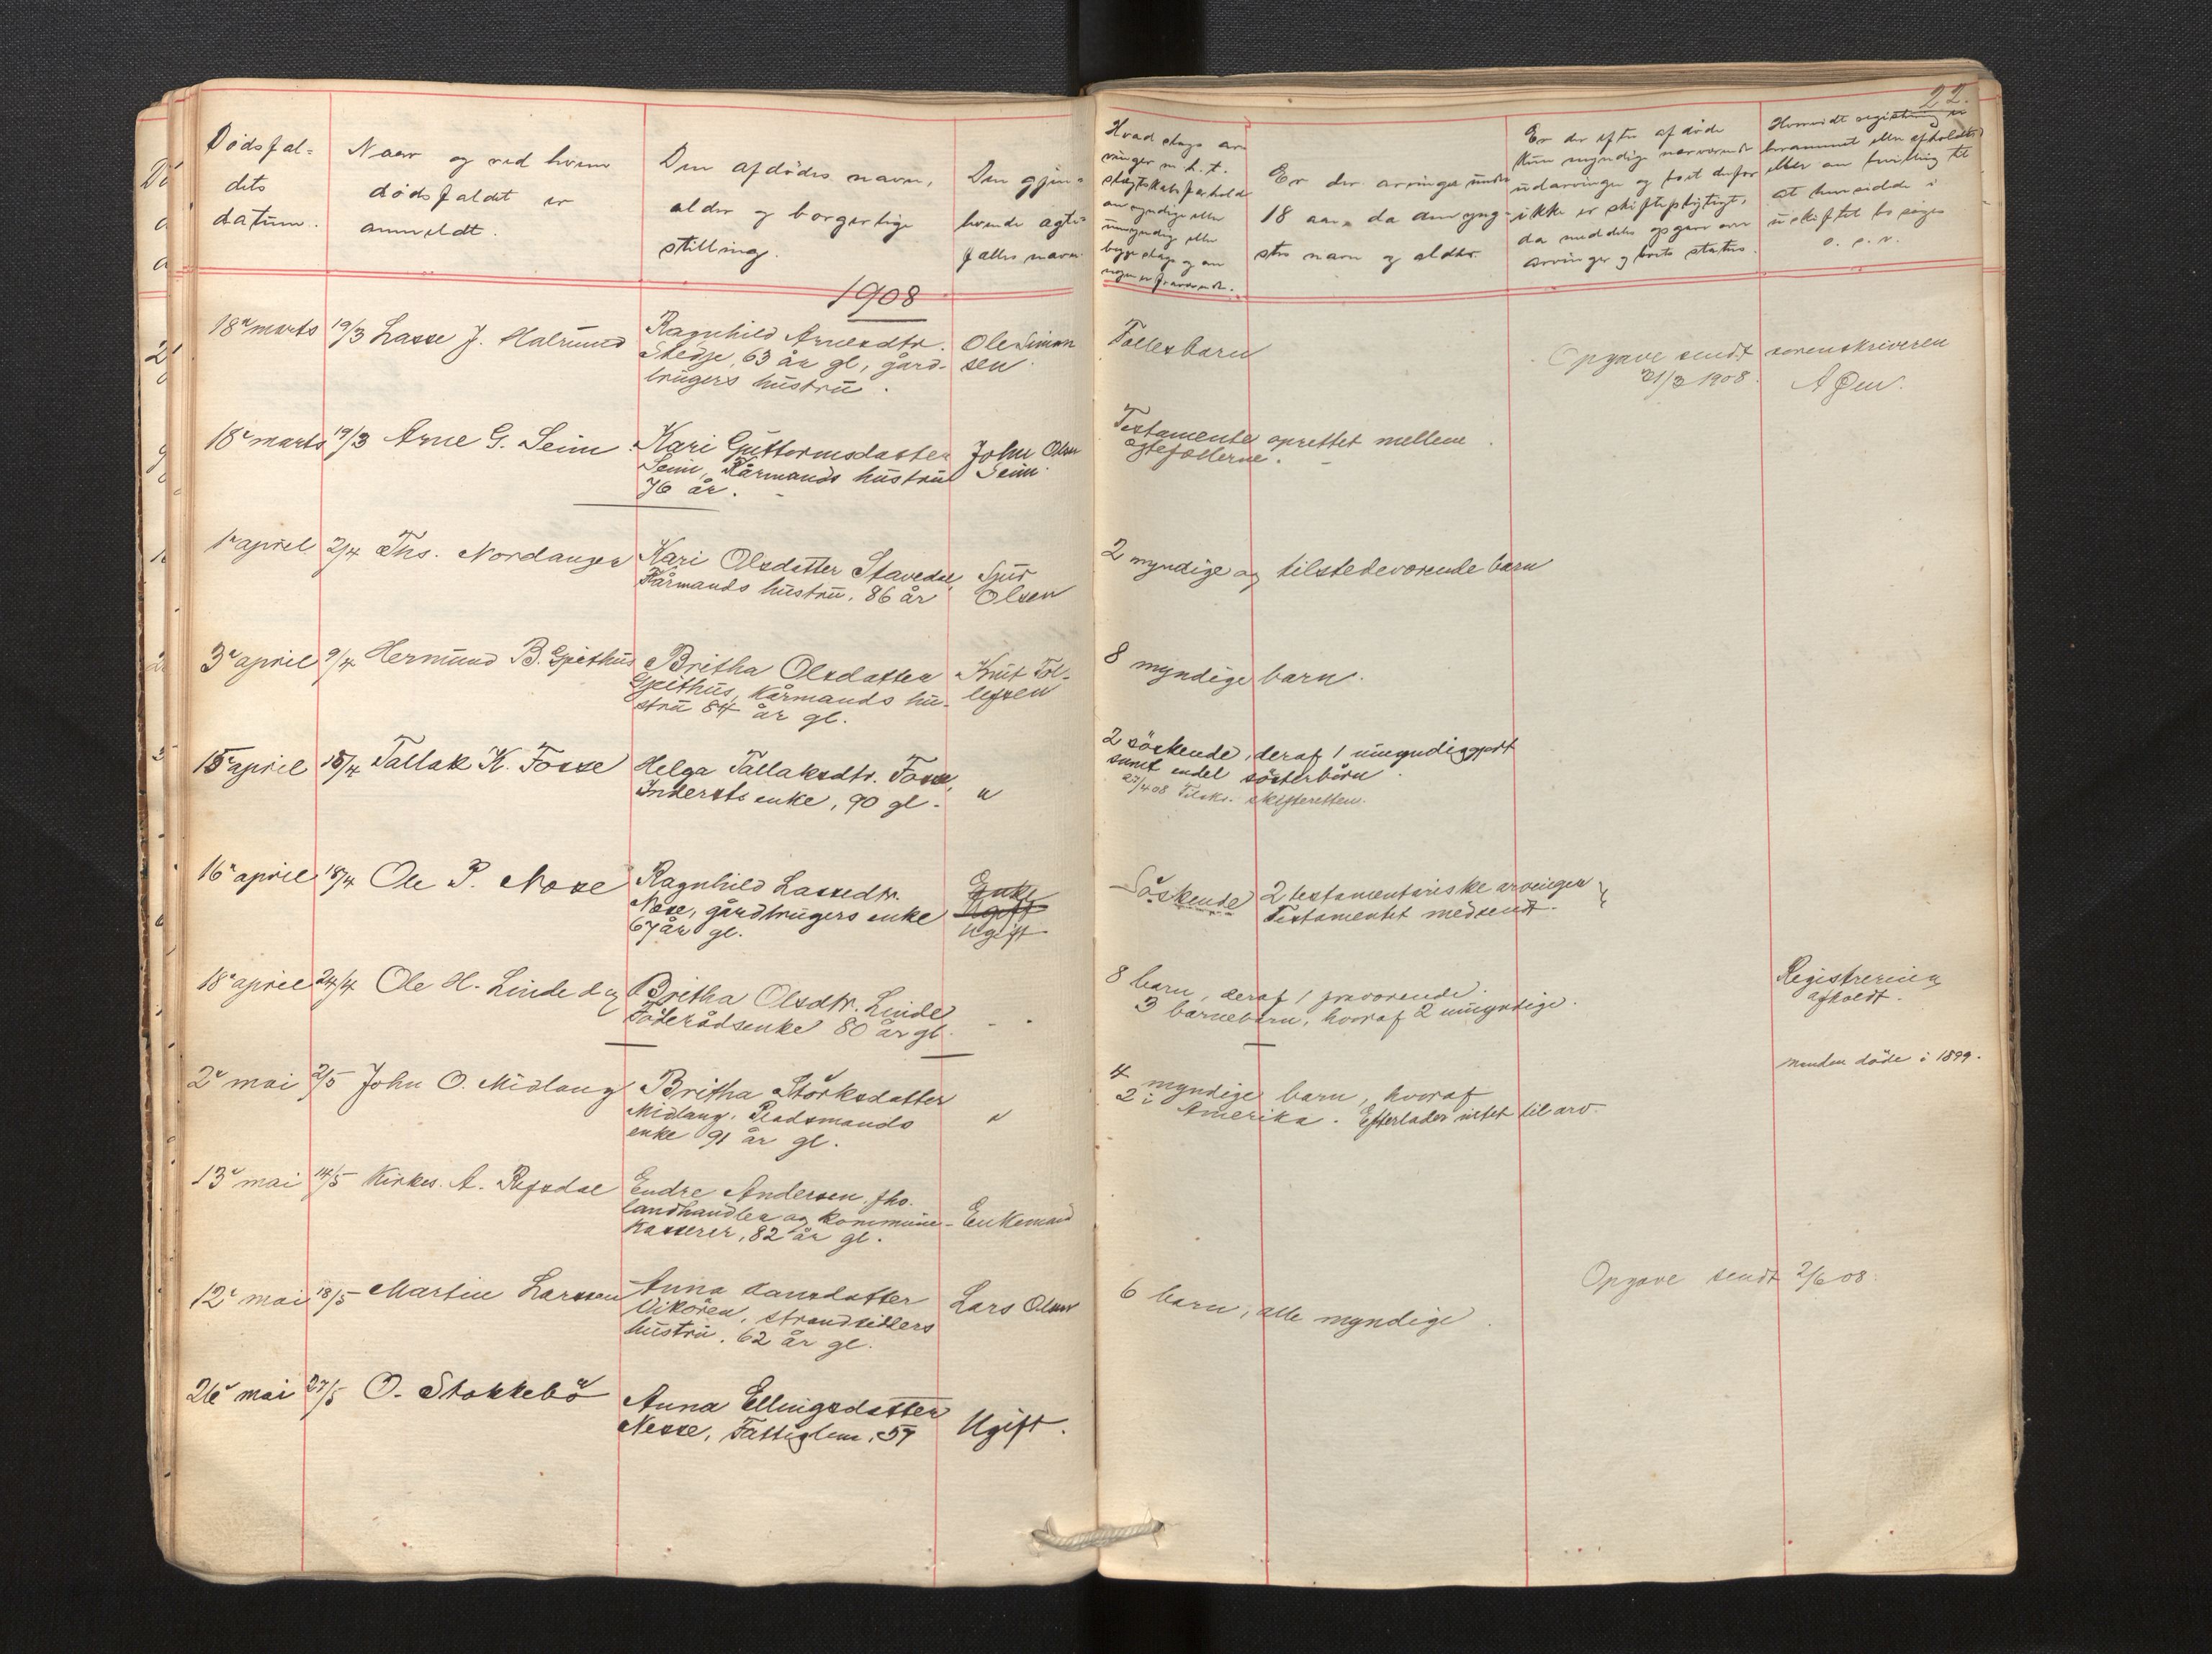 22.
Dødsfal-
dets
datum.
Naar og ved hvem
dødsfaldet er
anmeldt.
Den afdødes navn,
alder og borgerlige
stilling.
Den gjen-
levende ægte-
fælles navn.
Hvad slags ar-
vinger m.h.t.
slægtskabsforhold
om myndige eller
umyndig eller
begge slags og om
nogen er fraværende.
Er der arvinger under
18 aar, da den yng-
stes navn og alder.
Er der efter afdøde
kun myndige nærværende
udarvinger og boet derfor
ikke er skiftepligtigt,
da meddeles opgave over
arvinger og boets status.
Hvorvidt registrering er
berammet eller afholdt
eller om bevilling til
at hensidde i
uskiftet bo søges
o. s. v.
1908
18de marts
19/3 Lasse J. Halrund
Ragnhild Arnesdtr.
Skedje, 63 år gl, gård-
brugers hustru.
Ole Simon
sen.
Fællesbarn
Opgave sendt sorenskriveren
21/3 1908. A Øen.
18de marts
19/3 Arne G. Seim
Kari Guttormsdatter
Seim, Kårmands hustru
76 år.
John Olsen
Seim.
Testamente oprettet mellem
ægtefællerne.
1ste april
2/4 Ths. Nordanger
Kari Olsdatter Stavedal,
Kårmands hustru, 86 år
Sjur
Olsen
2 myndige og tilstedeværende barn
3de april
9/4 Hermund B. Gjeithus
Britha Olsdatter
Gjeithus, Kårmands hu-
stru 84 år gl.
Knut Tol-
lefsen
8 myndige barn.
15de april
18/4 Tallak K. Fosse
Helga Tallaksdtr. Fosse,
Inderstsenke, 90 gl.
"
2 söskende, deraf 1 umyndiggjort
samt endel sösterbörn.
27/4 08 Tilskr. skifteretten.
16de april
18/4 Ole P. Nose
Ragnhild Lassedtr.
Nose, gårdbrugers enke
67 år gl.
Enke
Ugift
Ugift
Söskende 2 testamentariske arvinger
Testamentet medsendt.
18de april
24/4 Ole H. Linde d.y.
Britha Olsdtr. Linde
Föderådsenke 80 år gl.
8 barn, deraf 1 fraværende.
3 barnebarn, hvoraf 2 umyndige.
Registrering
afholdt.
2de mai
2/5 John O. Midlang
Britha Störksdatter
Midlang, Pladsmands
enke 91 år gl.
"
4 myndige barn, hvoraf
2 i Amerika. Efterlader intet til arv.
Manden döde i 1899.
13de mai
14/5 Kirkes. A. Refsdal
Endre Andersen, fhv.
landhandler og kommune-
kasserer, 82 år gl.
Enkemand
12te mai
18/5 Martin Larssen
Anna Larsdatter
Vikören, strandsidders
hustru, 62 år gl.
Lars Olsen
6 barn, alle myndige.
Opgave sendt 2/6 08.
26de mai
27/5 O. Stokkebö
Anna Ellingsdatter
Nesse, Fattiglem, 57
Ugift.